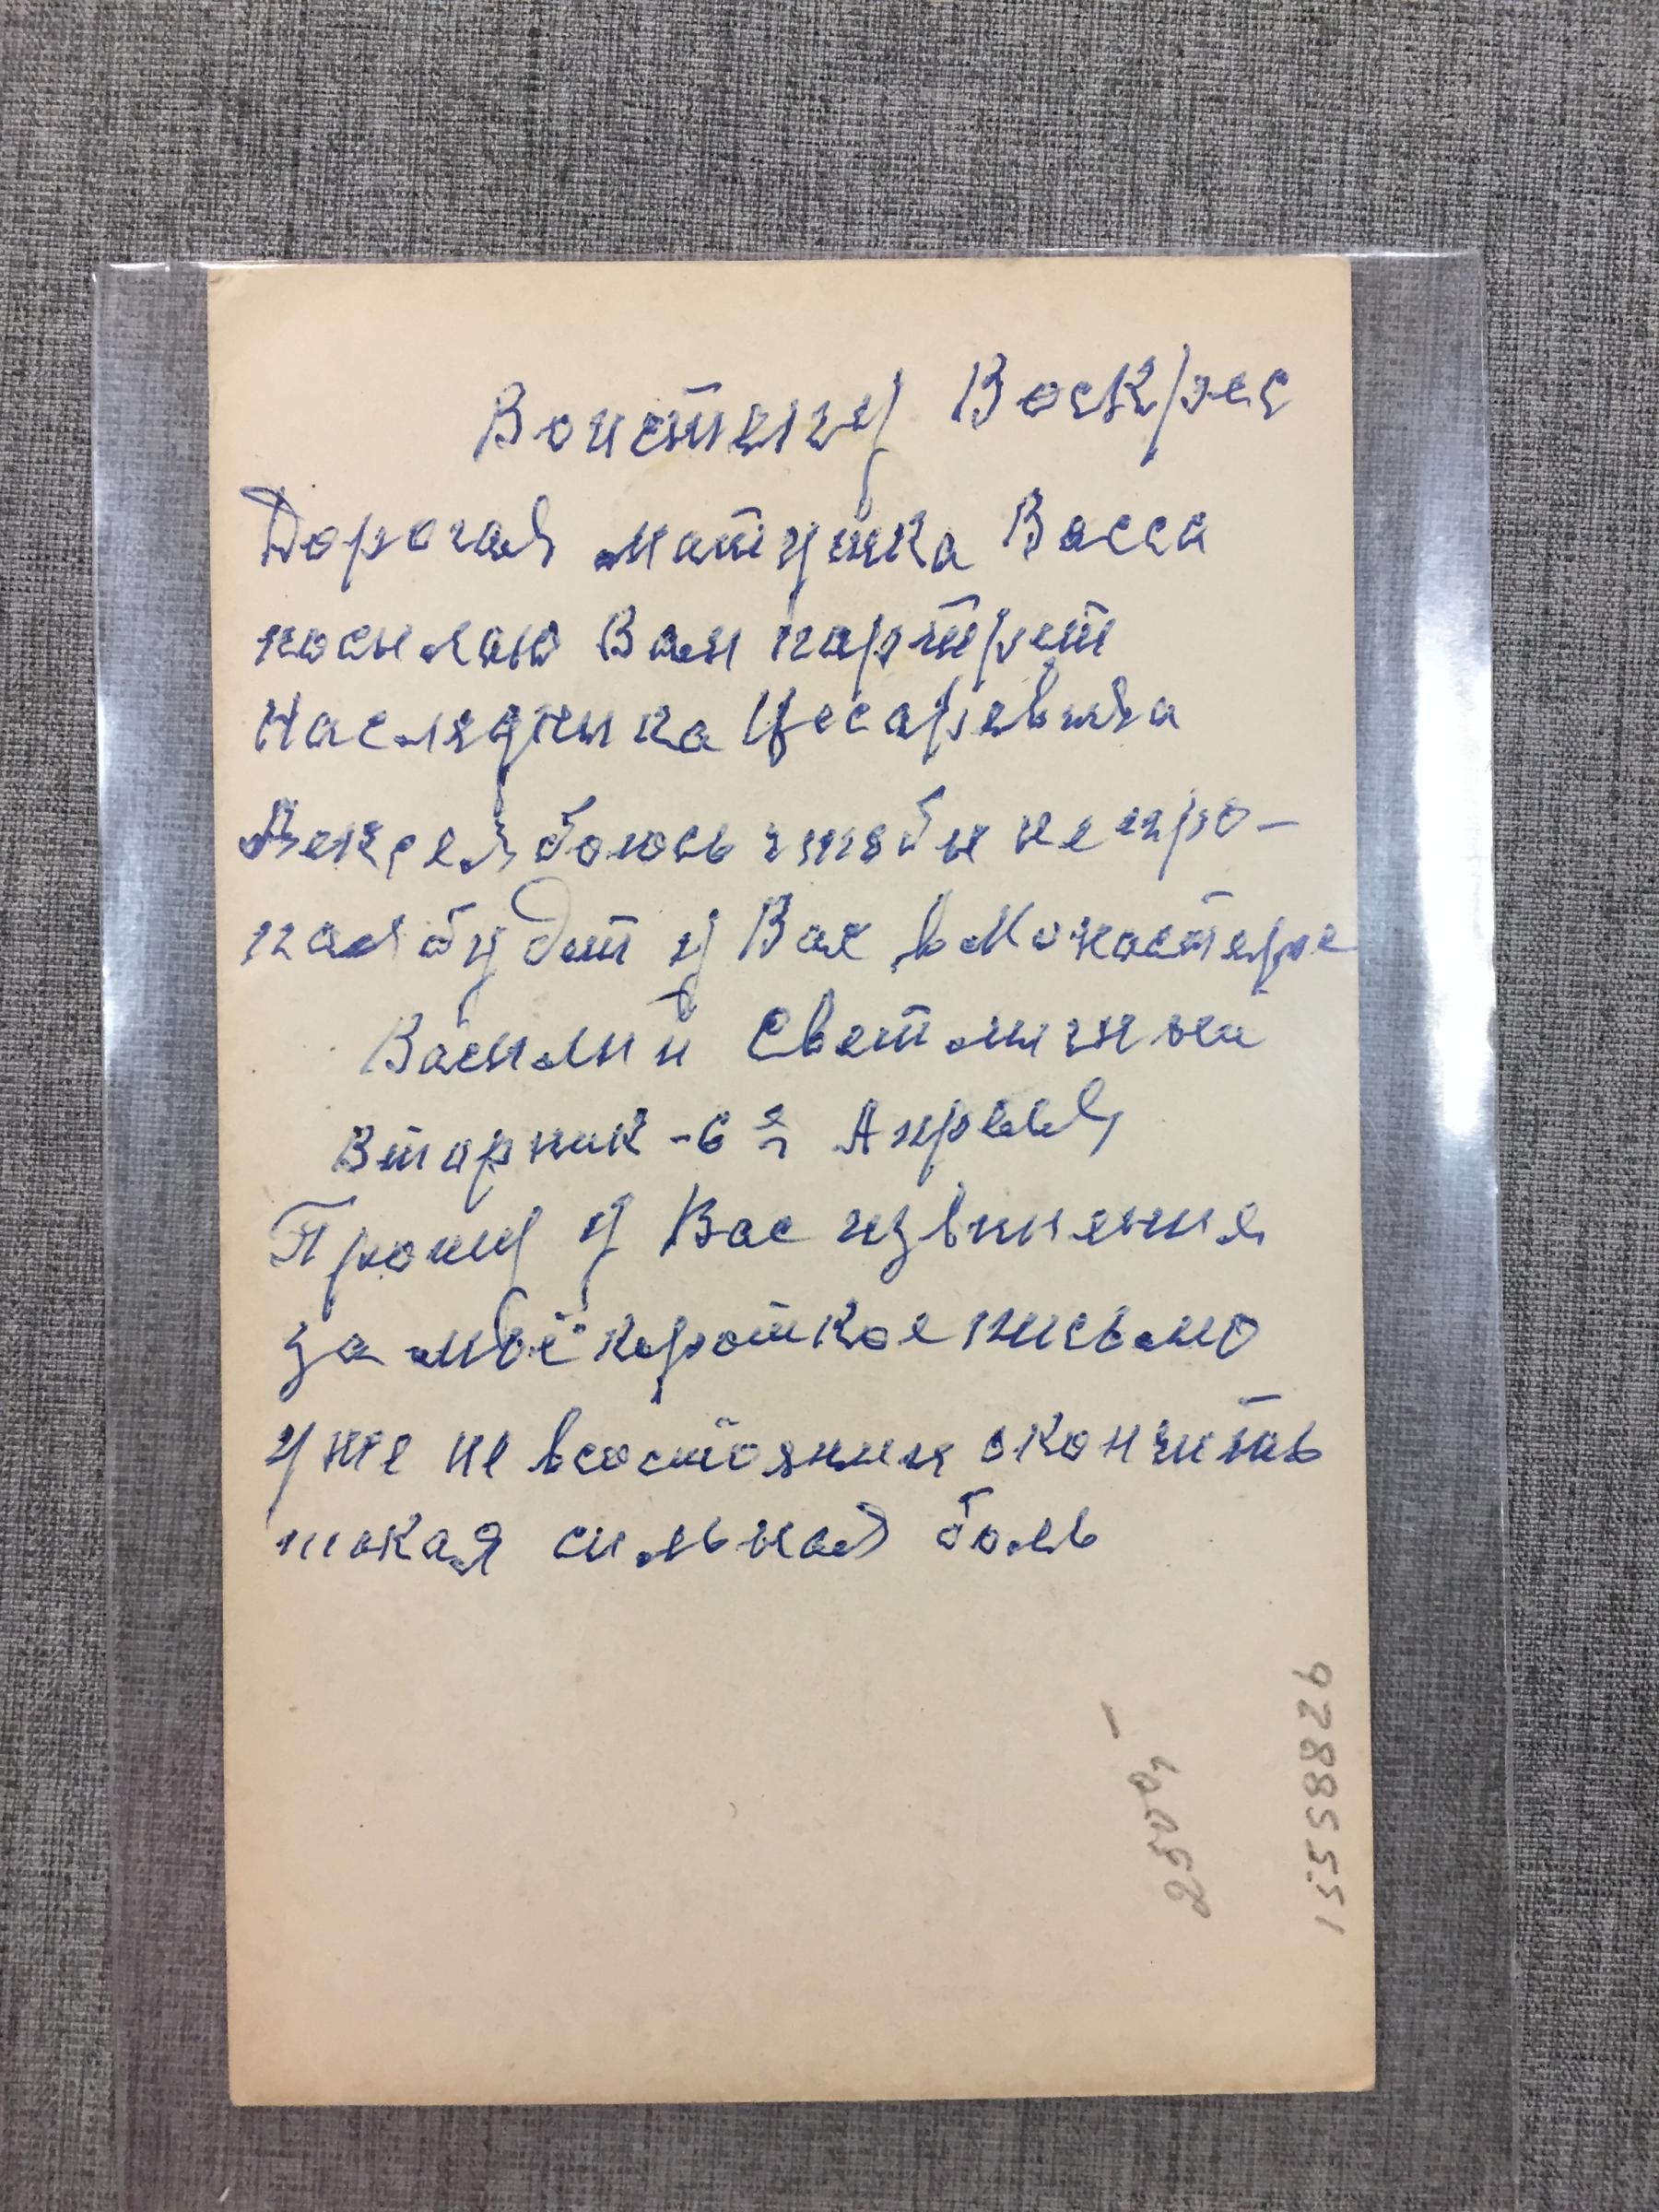 Воистину Воскрес
Дорогая матушка Васса
посылаю Вам партрет
Наследника Цесаревича
Алексея боюсь чтобы не про-
пал будет у Вас в Монастыре
Василий Светличный
Вторник - 6 го Апреля
Прошу у Вас извинения
за моё короткое письмо
уже не всостоянии окончить
такая сильная боль
2500,-
15588826